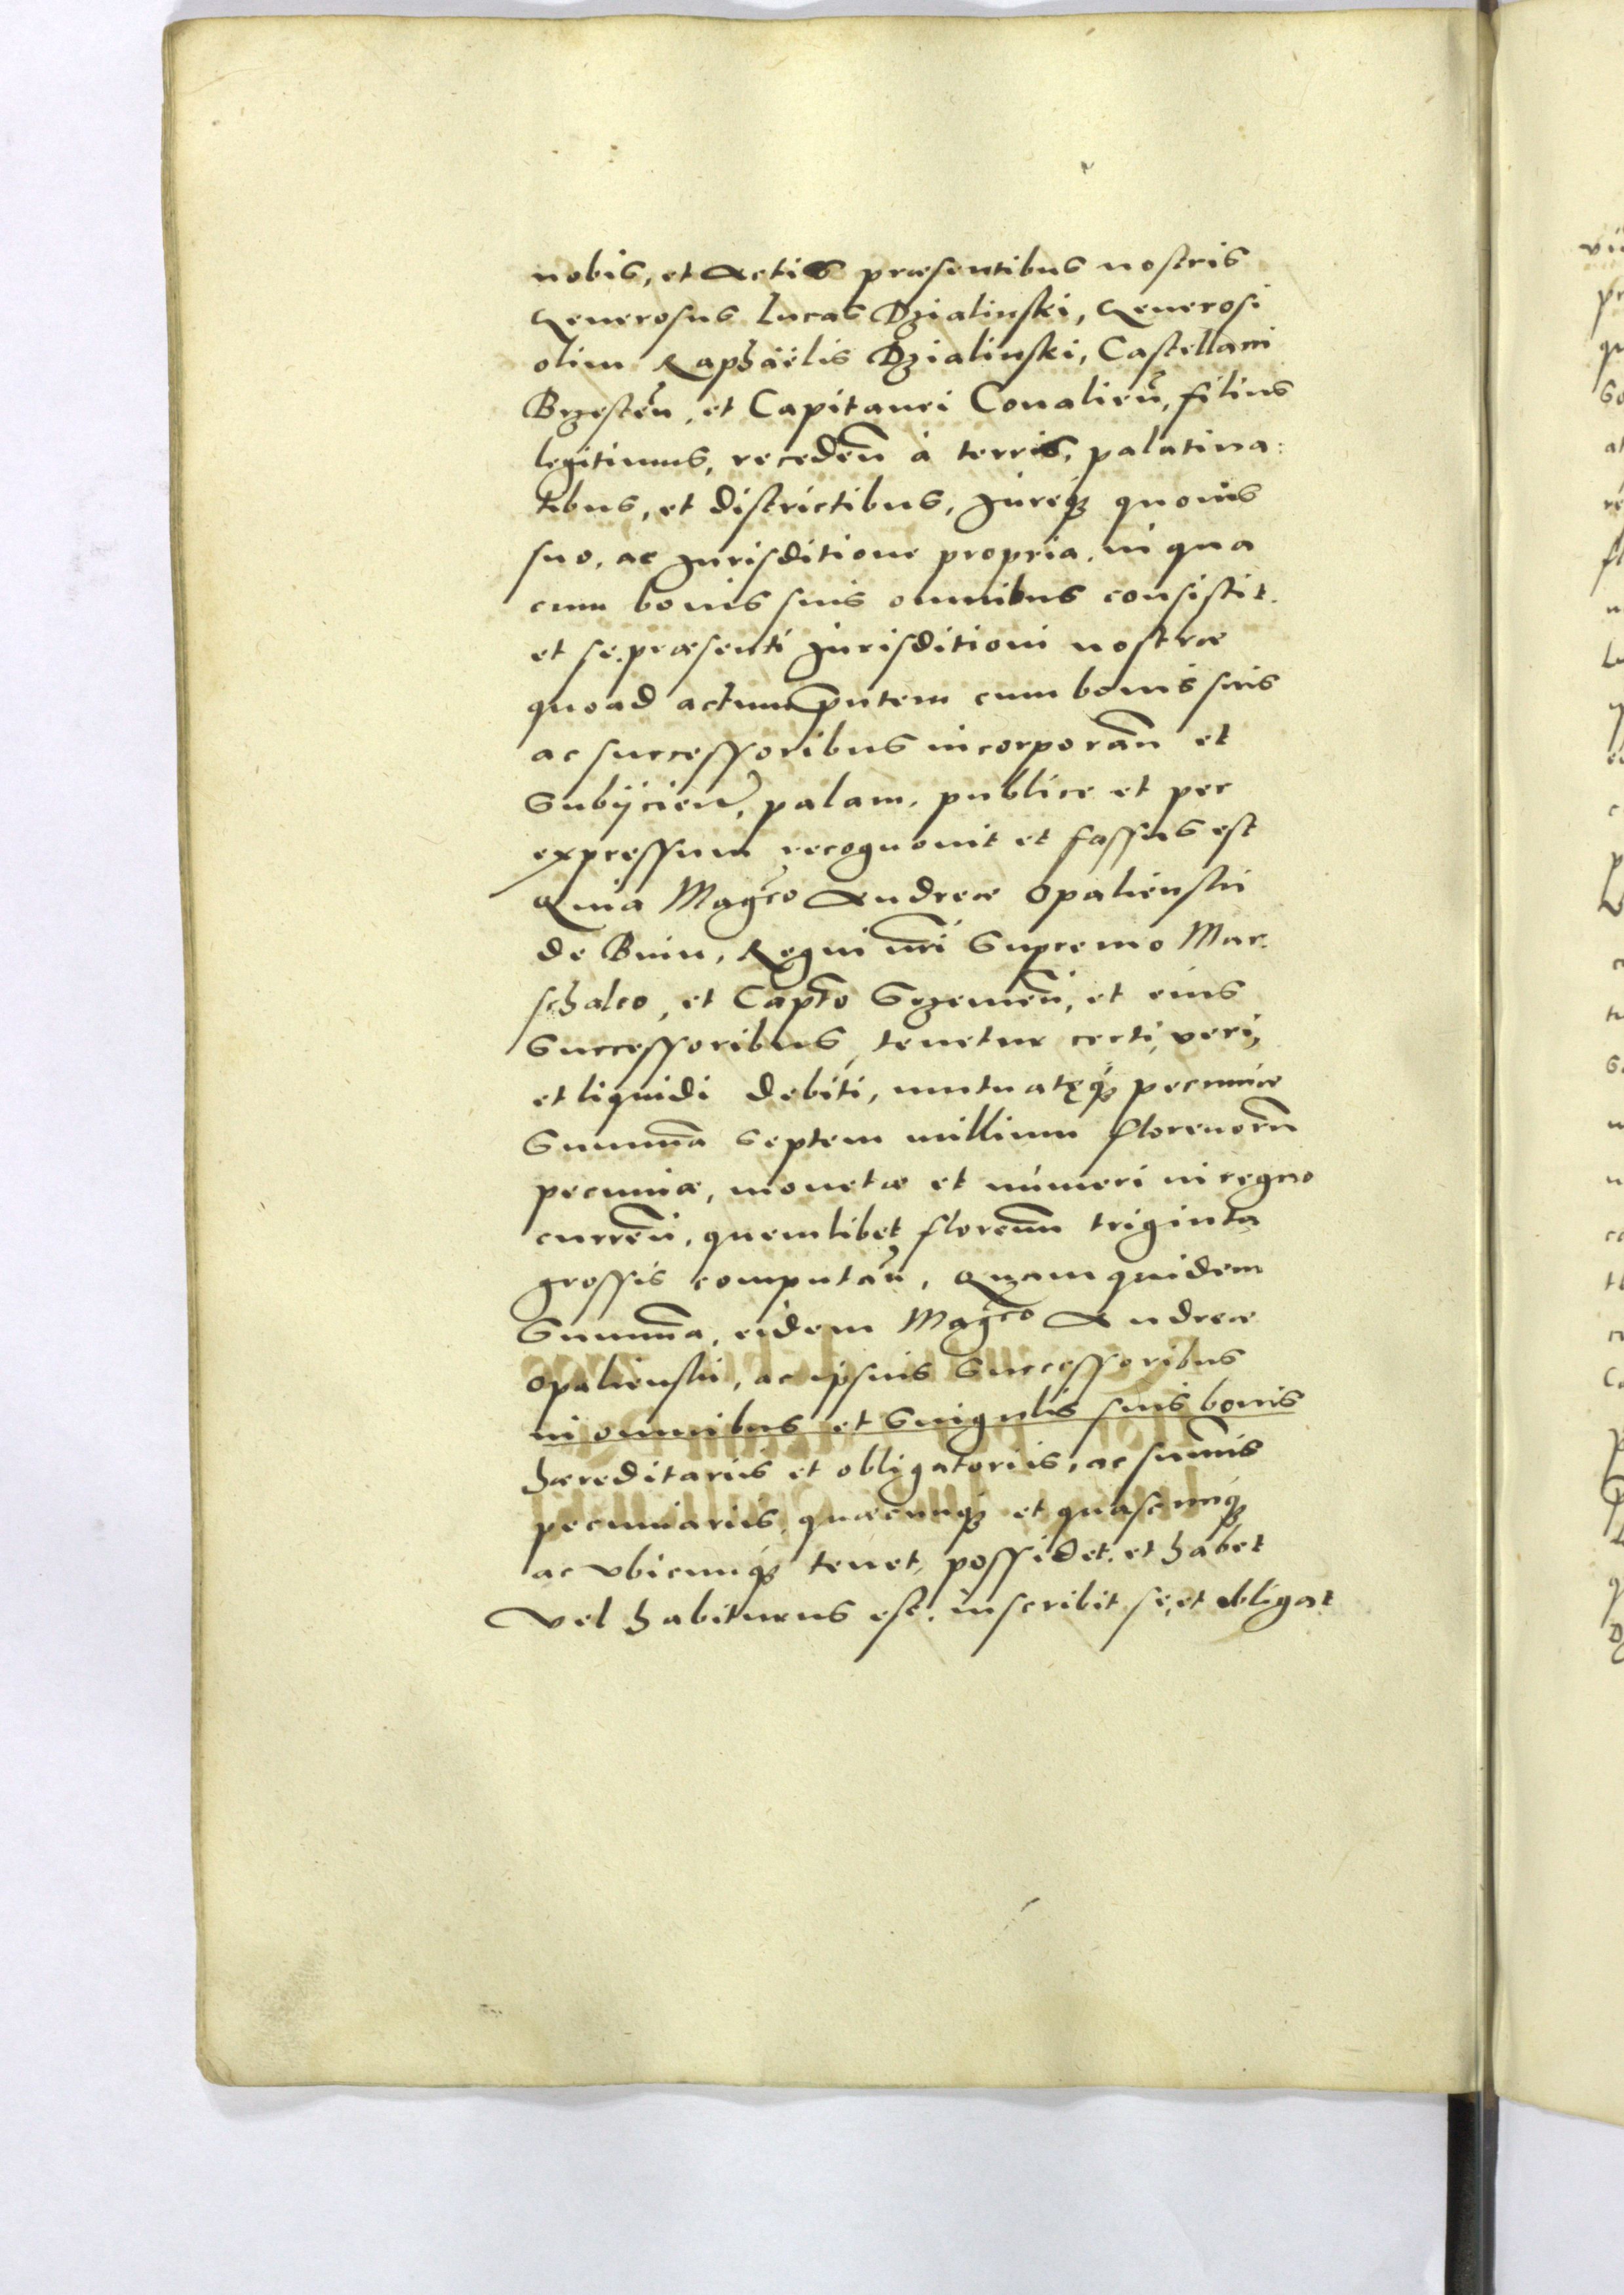 nobis, et Actis præsentibus nostris
Generosus Lucas Dzialinski, Generosi
olim Raphaëlis Dzialinski, Castellani
Brzesten̄, et Capitanei Conalien̄, filius
legitimus, receden̄ à terris, palatina:
tibus, et districtibus, Jureq3 quouis
suo, ac Jurisditione propria, in qua
cum bonis suis omnibus consistit.
et se præsenti Jurisditioni nostræ
quoad actum pn̄tem cum bonis suis
ac successoribus incorporan̄ et
Subijcien̄, palam, publice et per
expressum recognouit et fassus est
Quia Magco Andreæ Opalienski
de Bnin, Regni nr̄i Supremo Mar-
schalco, et Capto Srzemen̄, et eius
Successoribus tenetur certi, veri,
et liquidi debiti, mutuatęq3 pecuniæ
Summā Septem millium florenorū
pecuniæ, monetæ et númeri in regno
curren̄, quemlibet florenū triginta
grossis computan̄, Quam quidem
Summā, eidem Magco Andreæ
Opalienski, ac ipsius Successoribus
in omnibus et Singulis suis bonis
hæreditariis et obligatoriis, ac sum̄is
pecuniariis, quæcunq3 et quascunq3
ac vbicunq3 tenet, possidet, et habet
vel habiturus est, inscribit se, et obligat